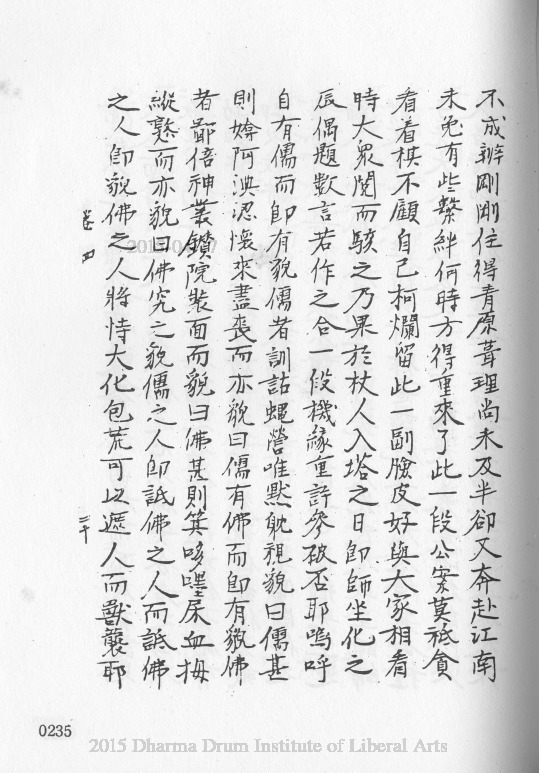 不成辦剛剛住得青原葺理尚未及半卻又奔赴江南
未免有些繫絆何時方得重來了此一段公案莫祗貪
看着棋不顧自己柯爛留此一副臉皮好與大家相看
時大衆閱而駭之乃果於杖人入塔之日即師坐化之
辰偶題數言若作之合一段機緣重許參破否耶嗚呼
自有儒而即有貌儒者訓詁蠅營唯默耽視貌曰儒甚
則媕阿淟忍懷來盡喪而亦貌曰儒有佛而即有貌佛
者鄙倍神叢鑽院裝面而貌曰佛甚則箕哆嚜屎血拇
縱戮而亦貌曰佛究之貌儒之人即詆佛之人而詆佛
之人即貌佛之人將恃大化包荒可以遞人而獸襲耶
卷四
二十
0235
2015 Dharma Drum Institute of Liberal Arts